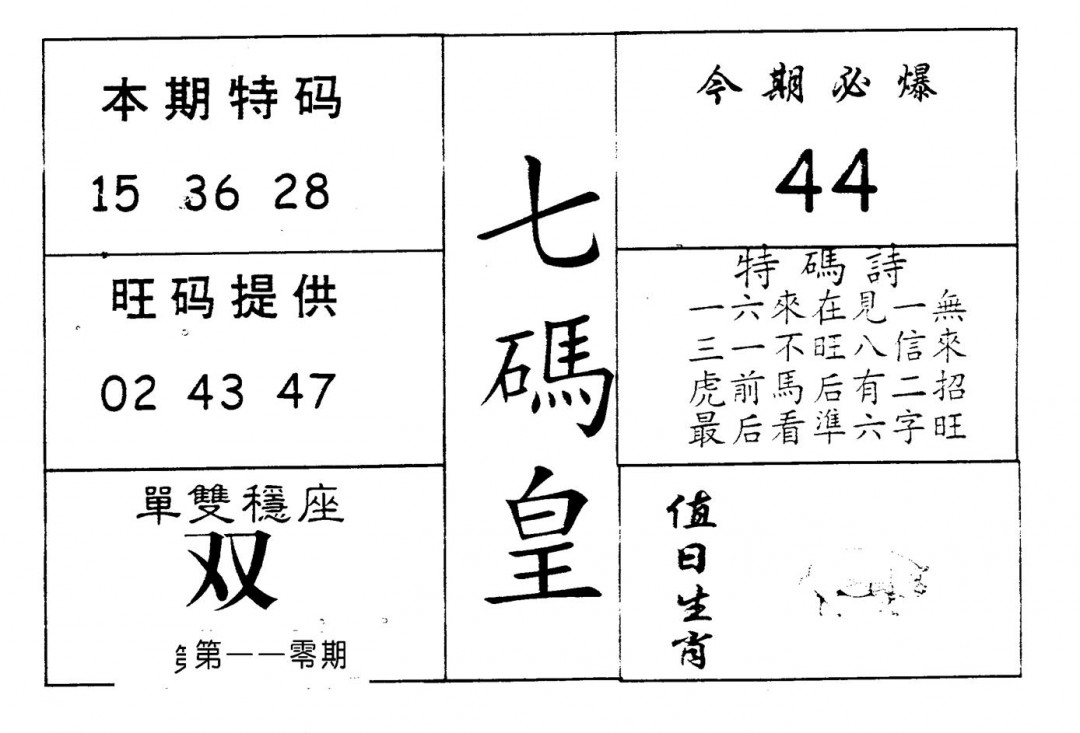 本期特码
15 36 28
旺码提供
02 43 47
單雙穩座
双
第一一零期
七
碼
皇
今期必爆
44
特碼詩
一六來在見一無
三一不旺八信來
虎前馬后有二招
最后看準六字旺
值日生肖